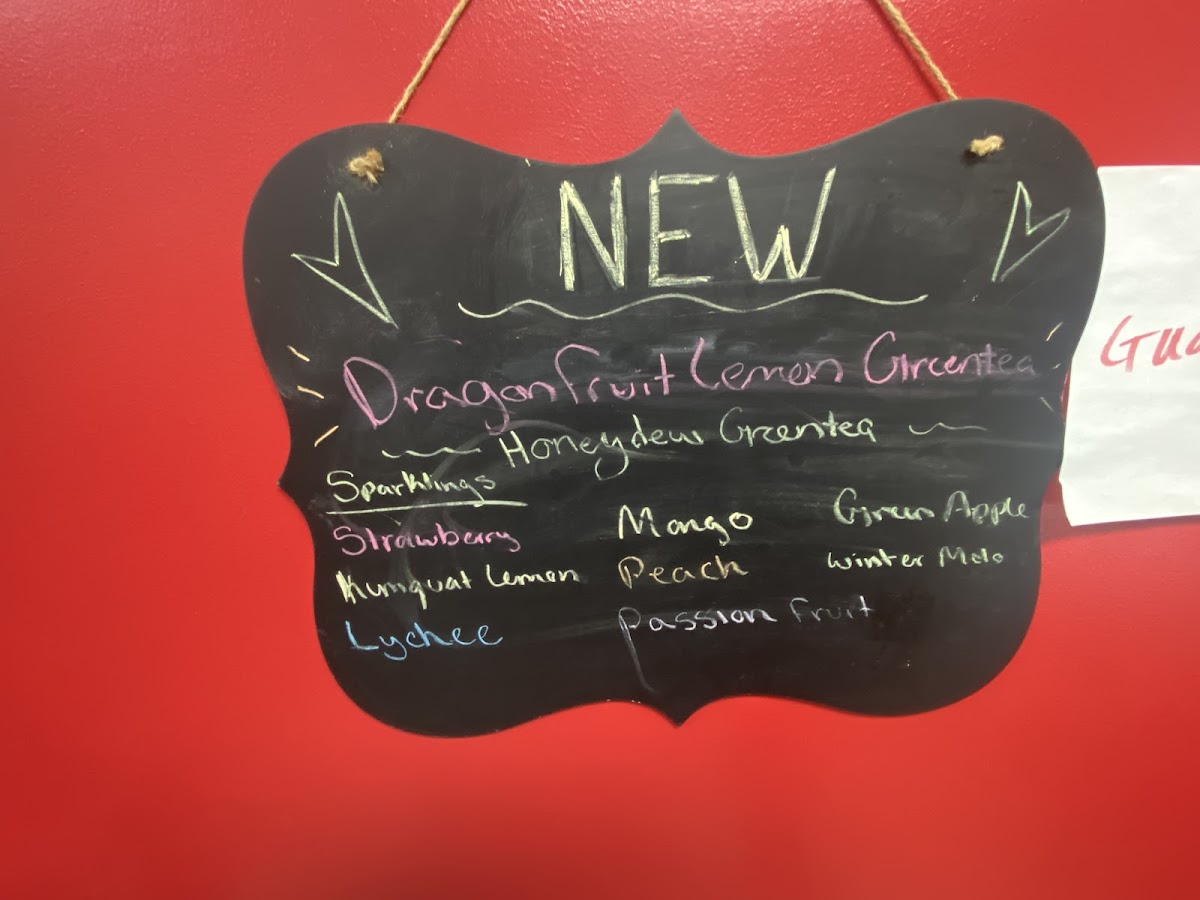 NEW
Dragonfruit Lemon Greentea
Honeydew Greentea
Sparklings
Strawberry
Kumquat Lemon
Lychee
Mango
Peach
Passion Fruit
Green Apple
Winter Melo
Gua